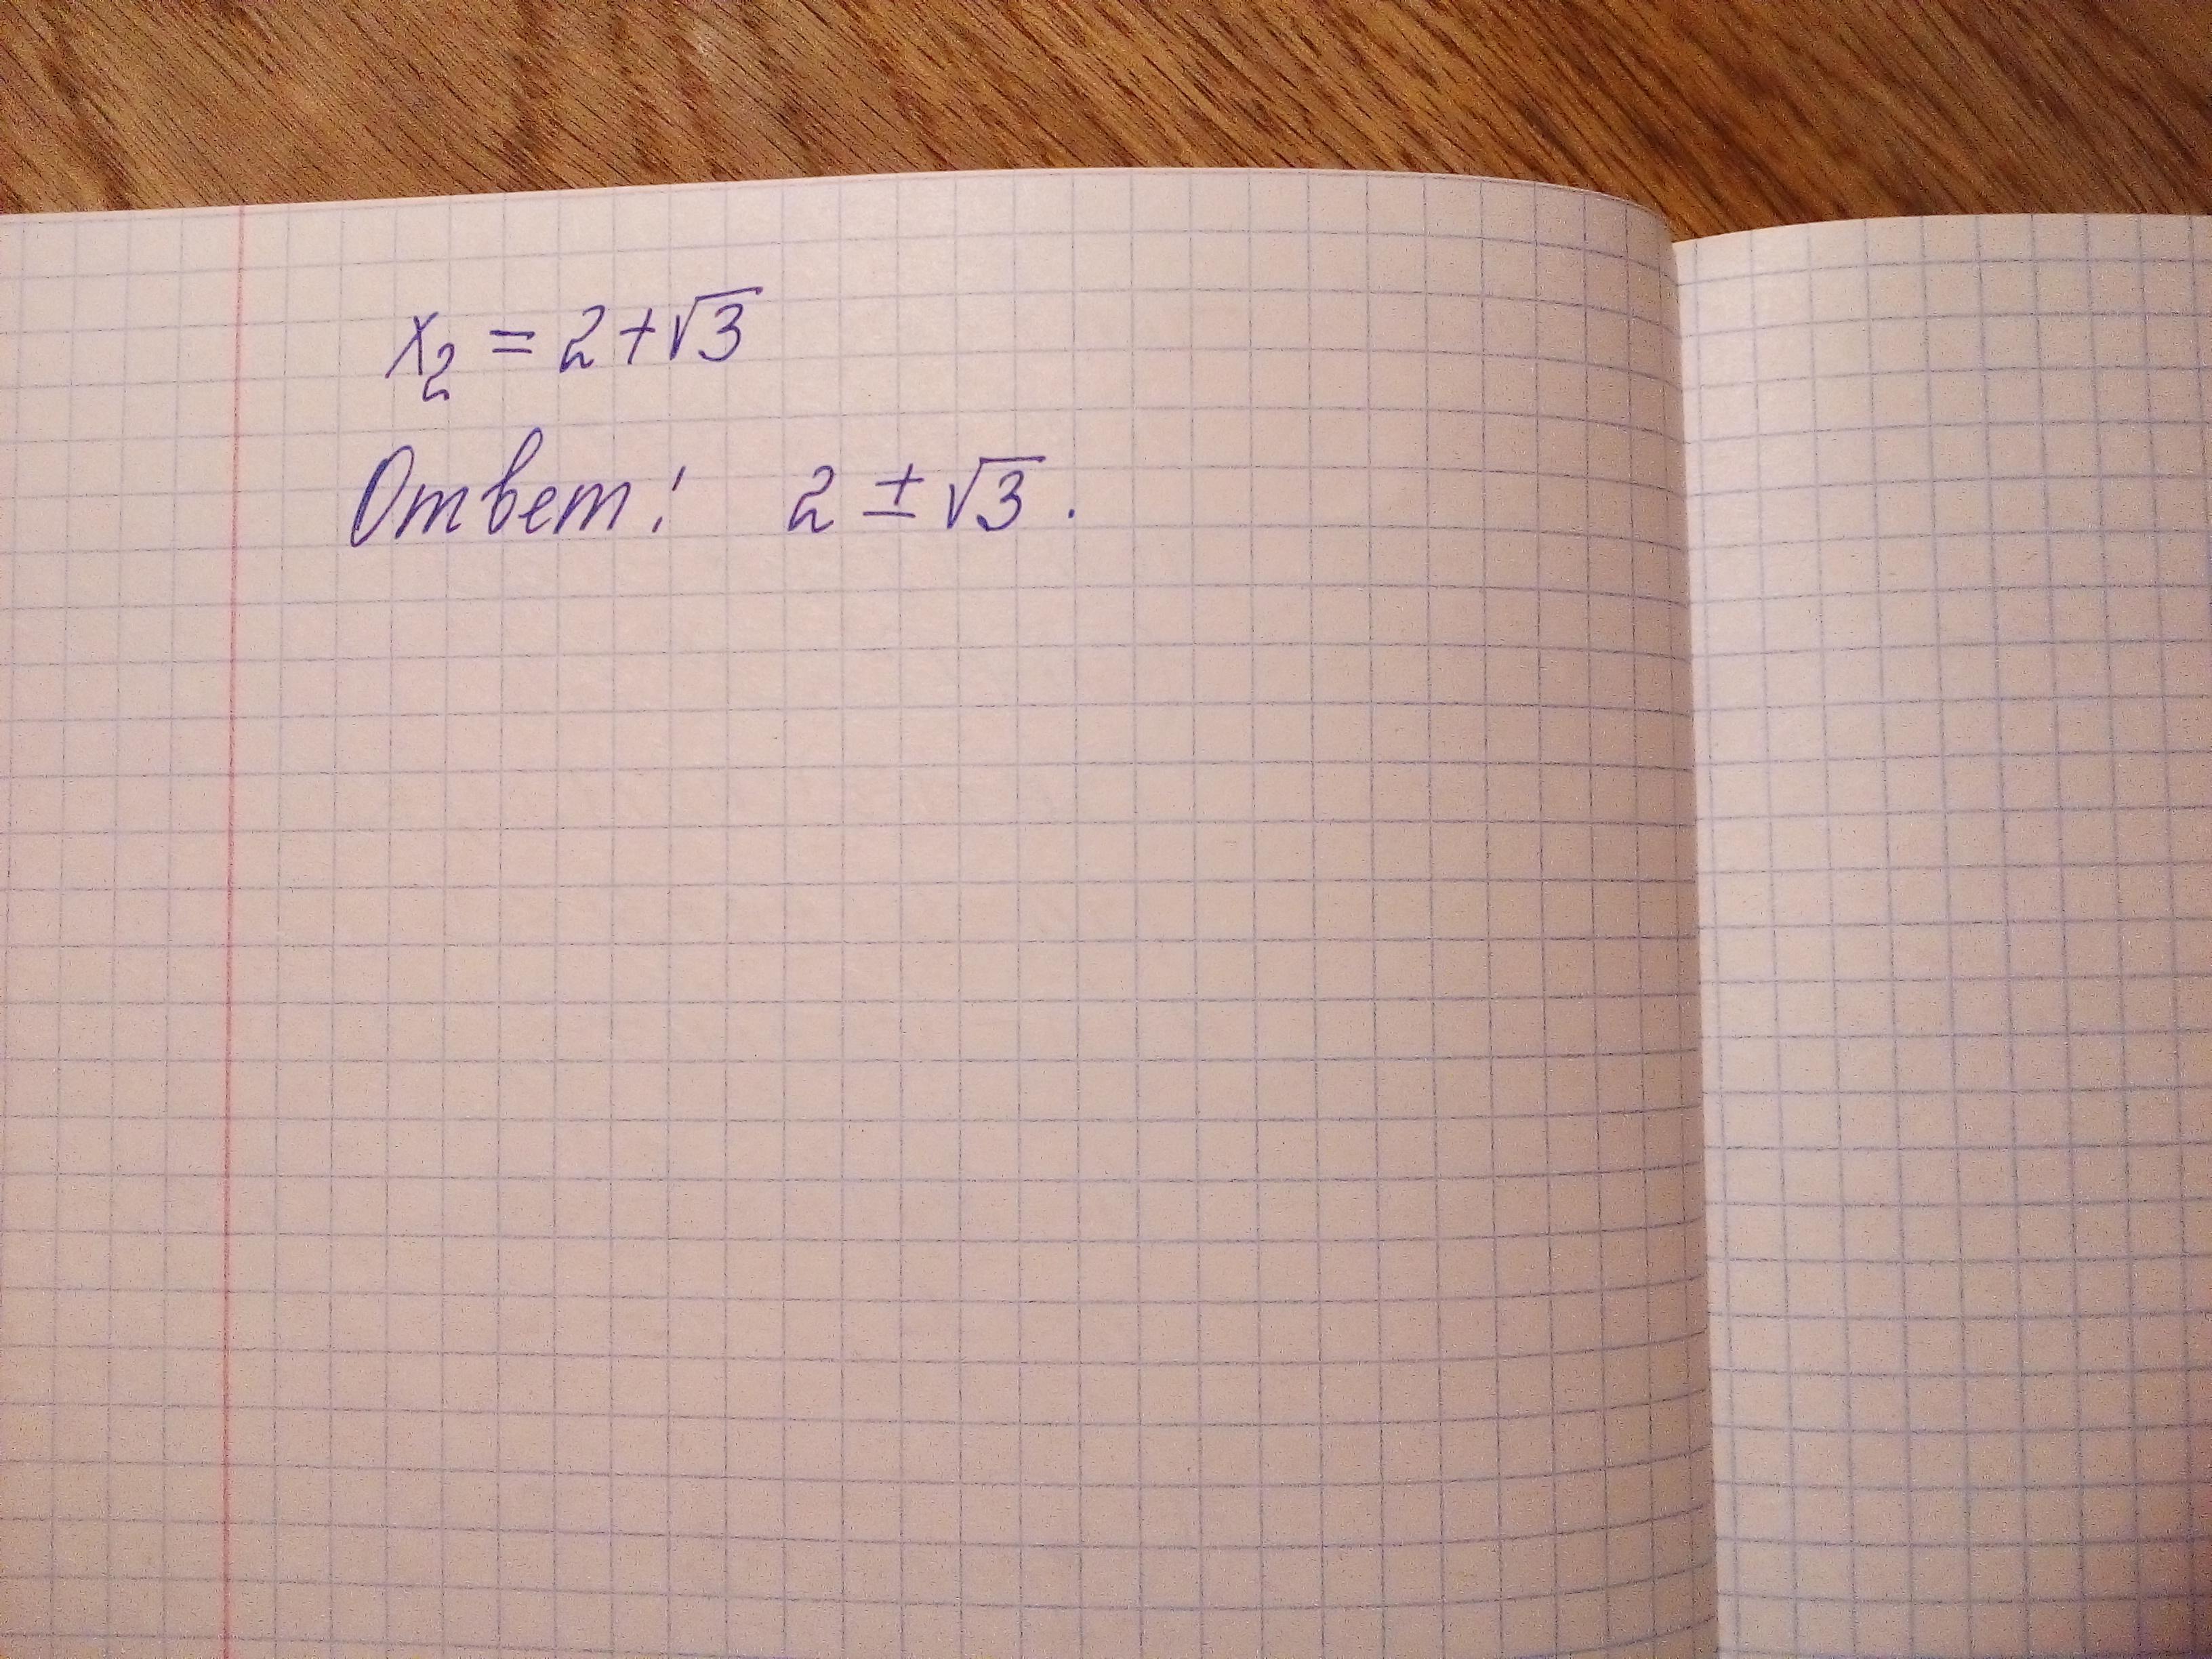 x₂ = 2+√3
Ответ: 2 ± √3.